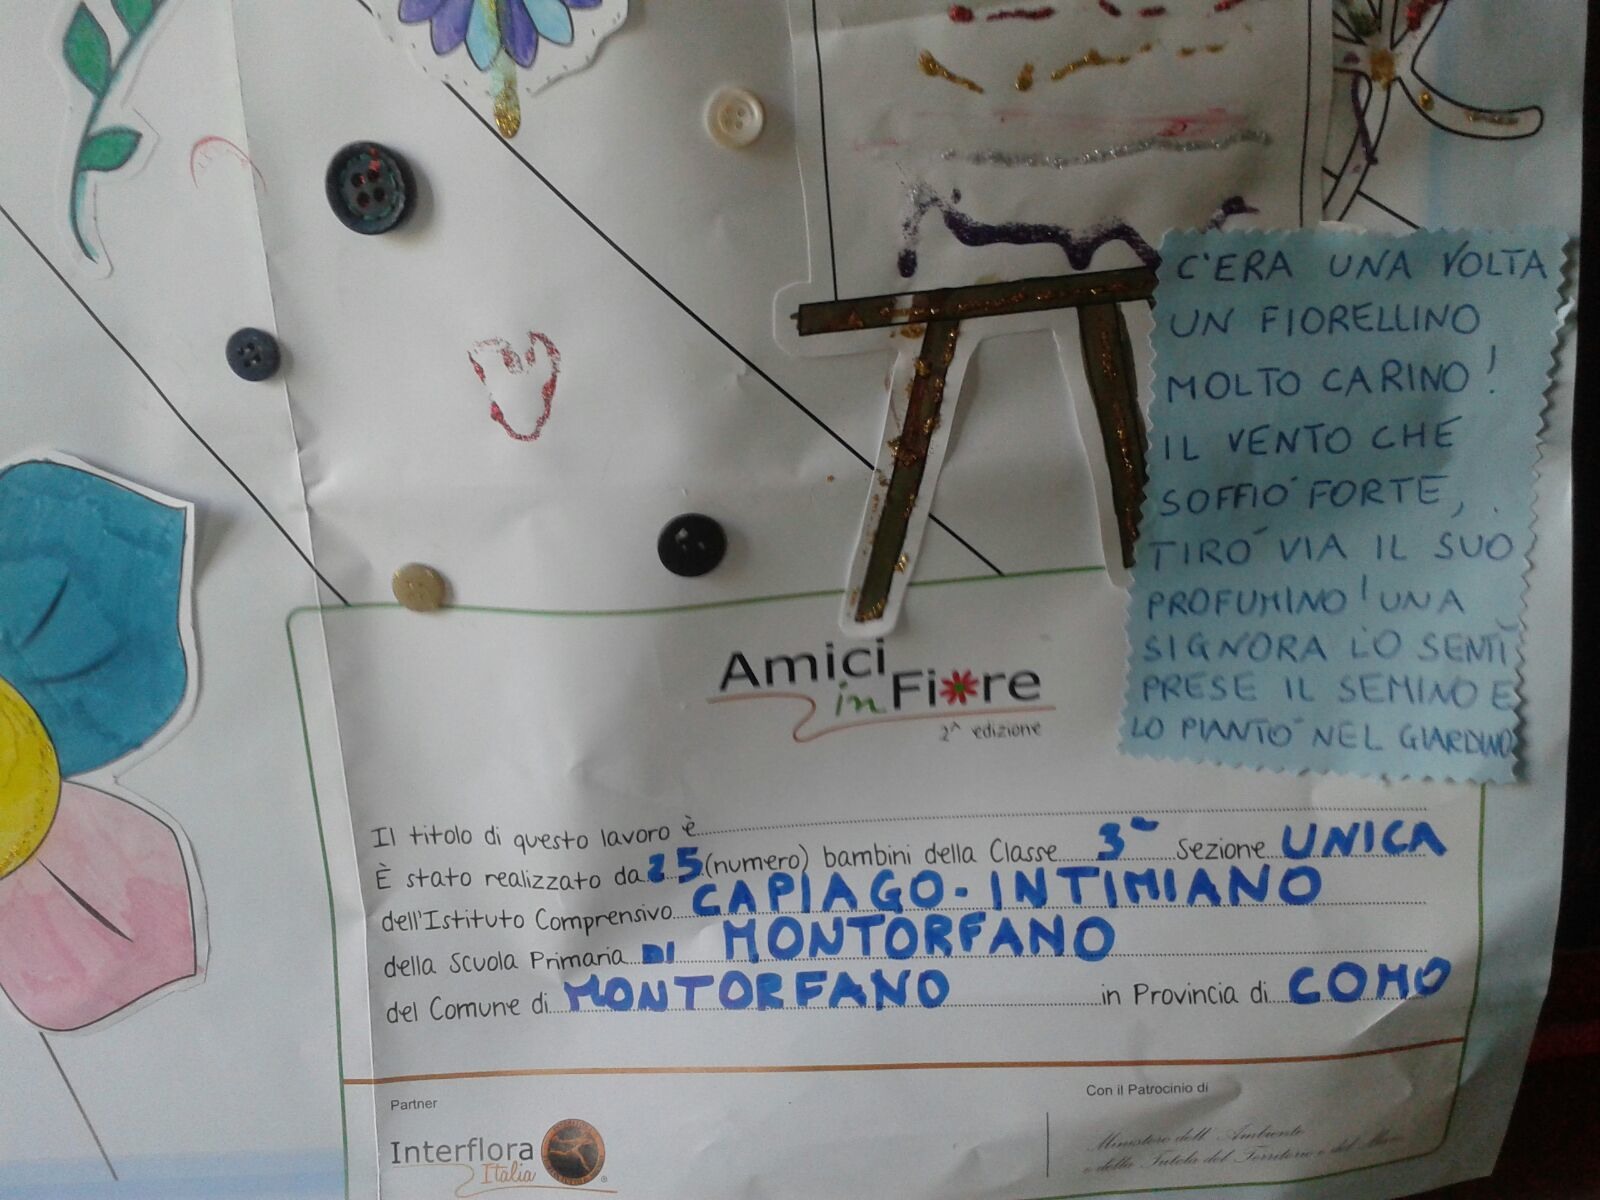 C'ERA UNA VOLTA
UN FIORELLINO
MOLTO CARINO!
IL VENTO CHE
SOFFIO' FORTE,
TIRO' VIA IL SUO
PROFUMINO! UNA
SIGNORA LO SENTÌ
PRESE IL SEMINO E
LO PIANTO' NEL GIARDINO
Amici
in Fiore
2^ edizione
Il titolo di questo lavoro è
È stato realizzato da 25 (numero) bambini della Classe 3^ Sezione UNICA
dell'Istituto Comprensivo CAPIAGO-INTIMIANO
della Scuola Primaria DI MONTORFANO
del Comune di MONTORFANO in Provincia di COMO
Partner
Interflora
Italia
Con il Patrocinio di
Ministero dell'Ambiente
e della Tutela del Territorio e del Mare